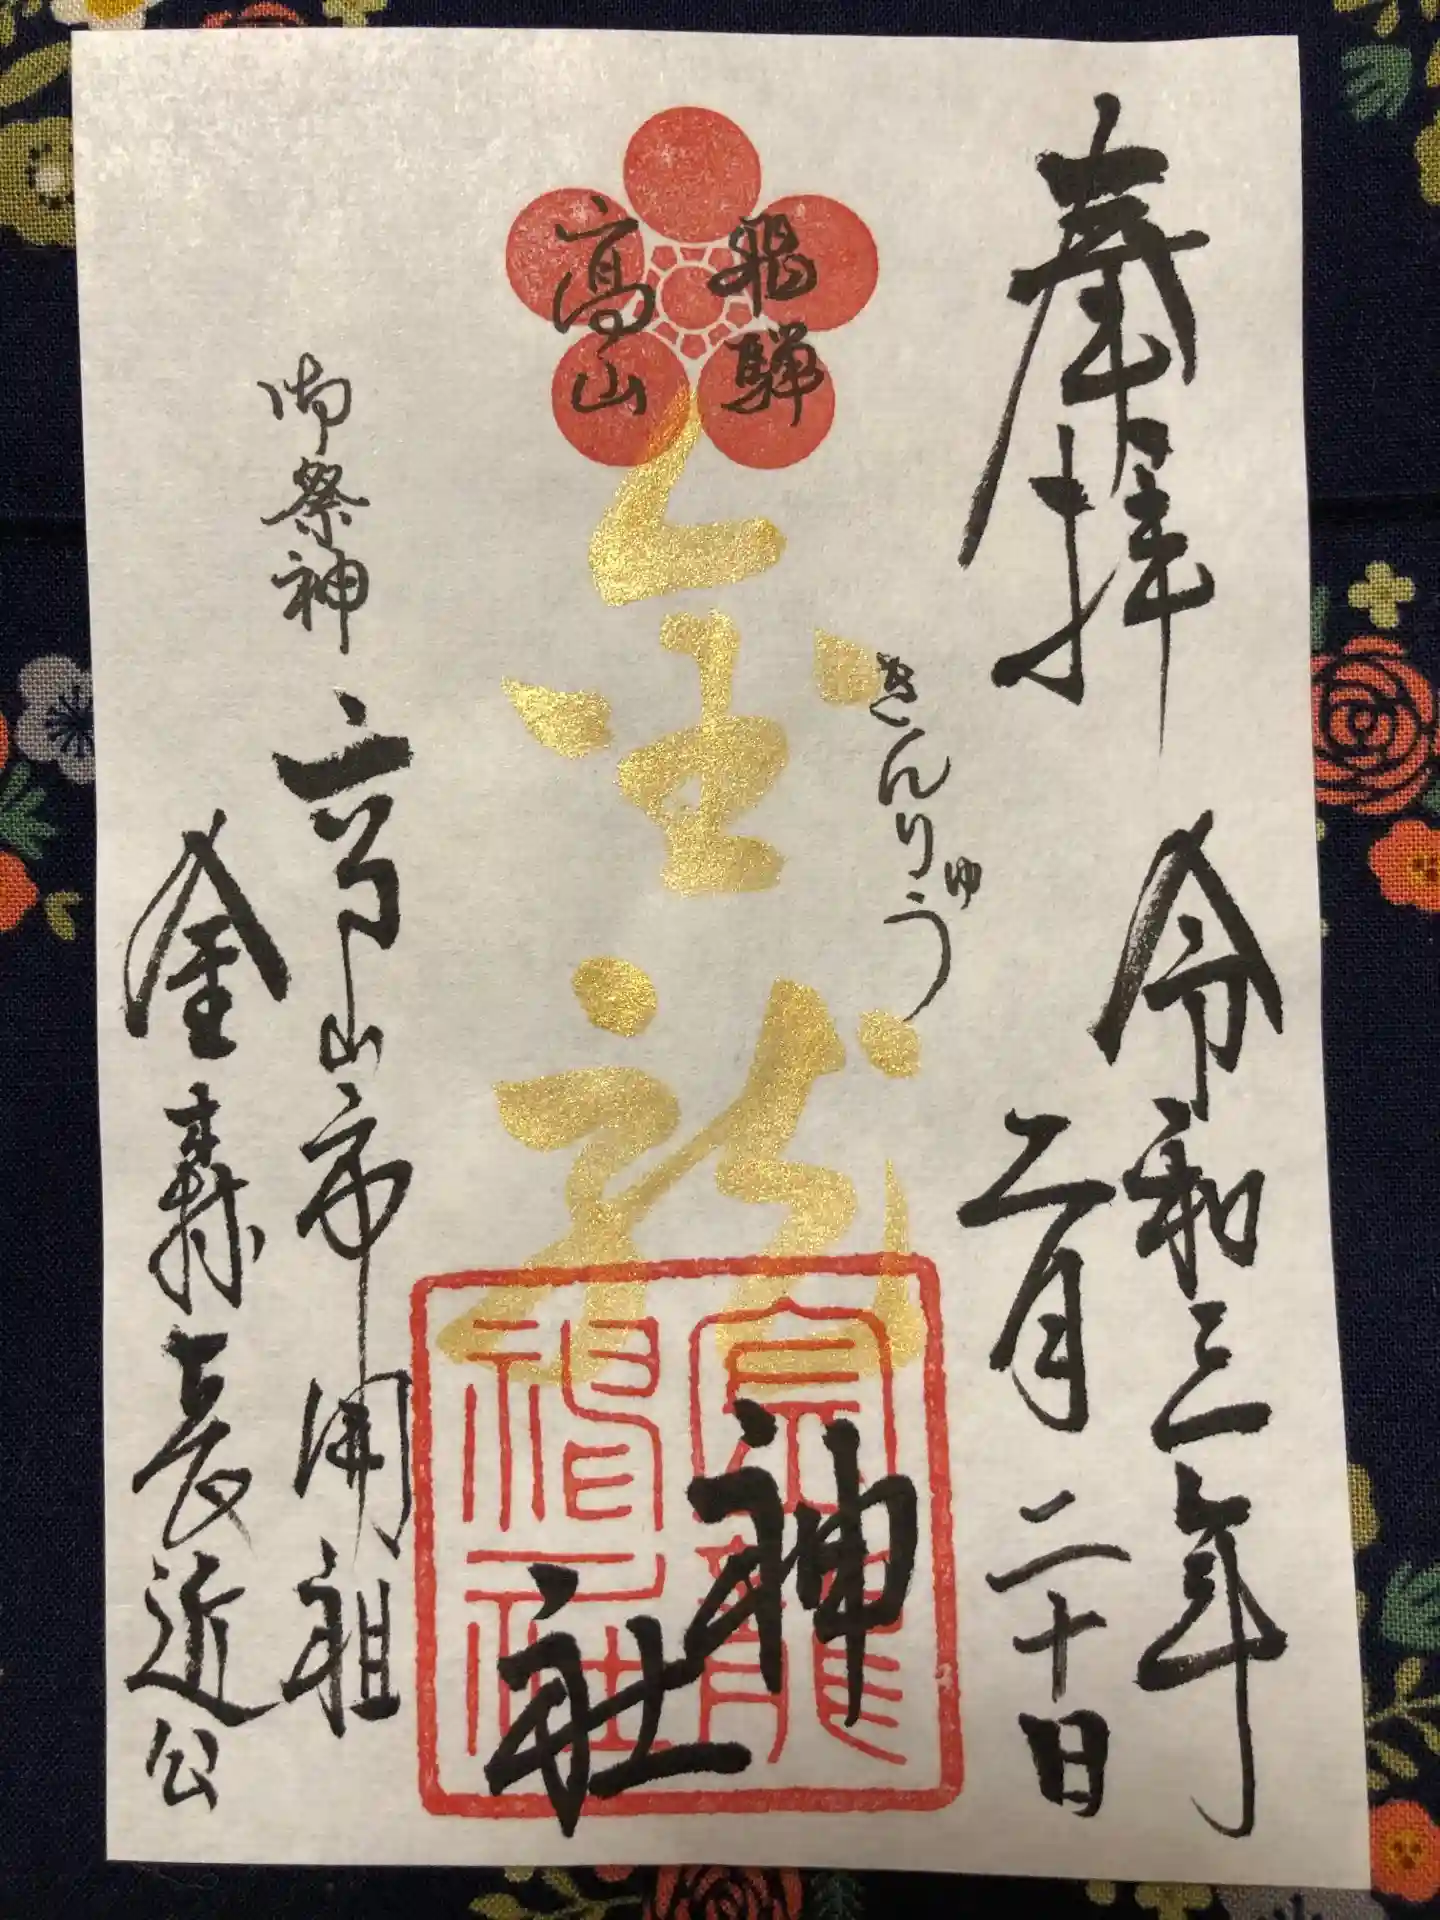 奉拝
令和三年
二月二十日
飛騨
高山
きんりゅう
金龍
神社
金龍
神社
御祭神
高山市開祖
金森長近公